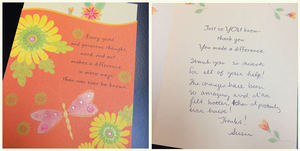 Every good
and generous thought,
word and act
makes a difference
in more ways
than can ever be known.
Just so YOU know
thank you
You made a difference.
Thank you so much
for all of your help!
The changes have been
so amazing, and I've
felt better than I possibly
ever have!
Thanks!
Susan